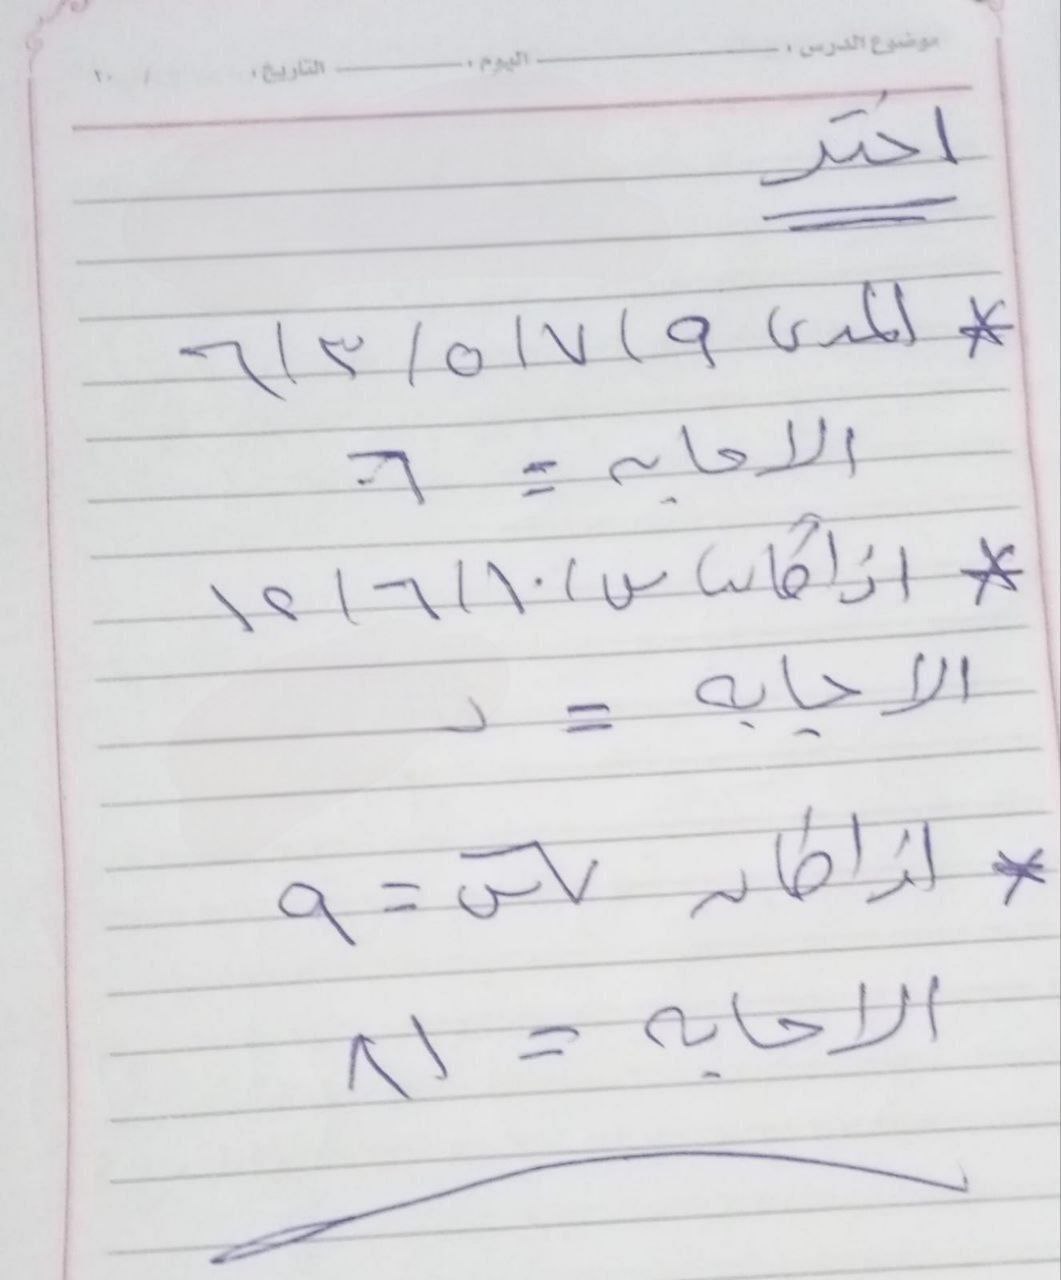 موضوع الدرس : اليوم : التاريخ : / ٢٠
اختر
* المدى ٩ / ٧ / ٥ / ٣ / ٦
الاجابه = ٦
* اذا كانت س / ١٠ / ٦ / ١٥
الاجابه =
* اذا كان √س = ٩
الاجابه = ٨١